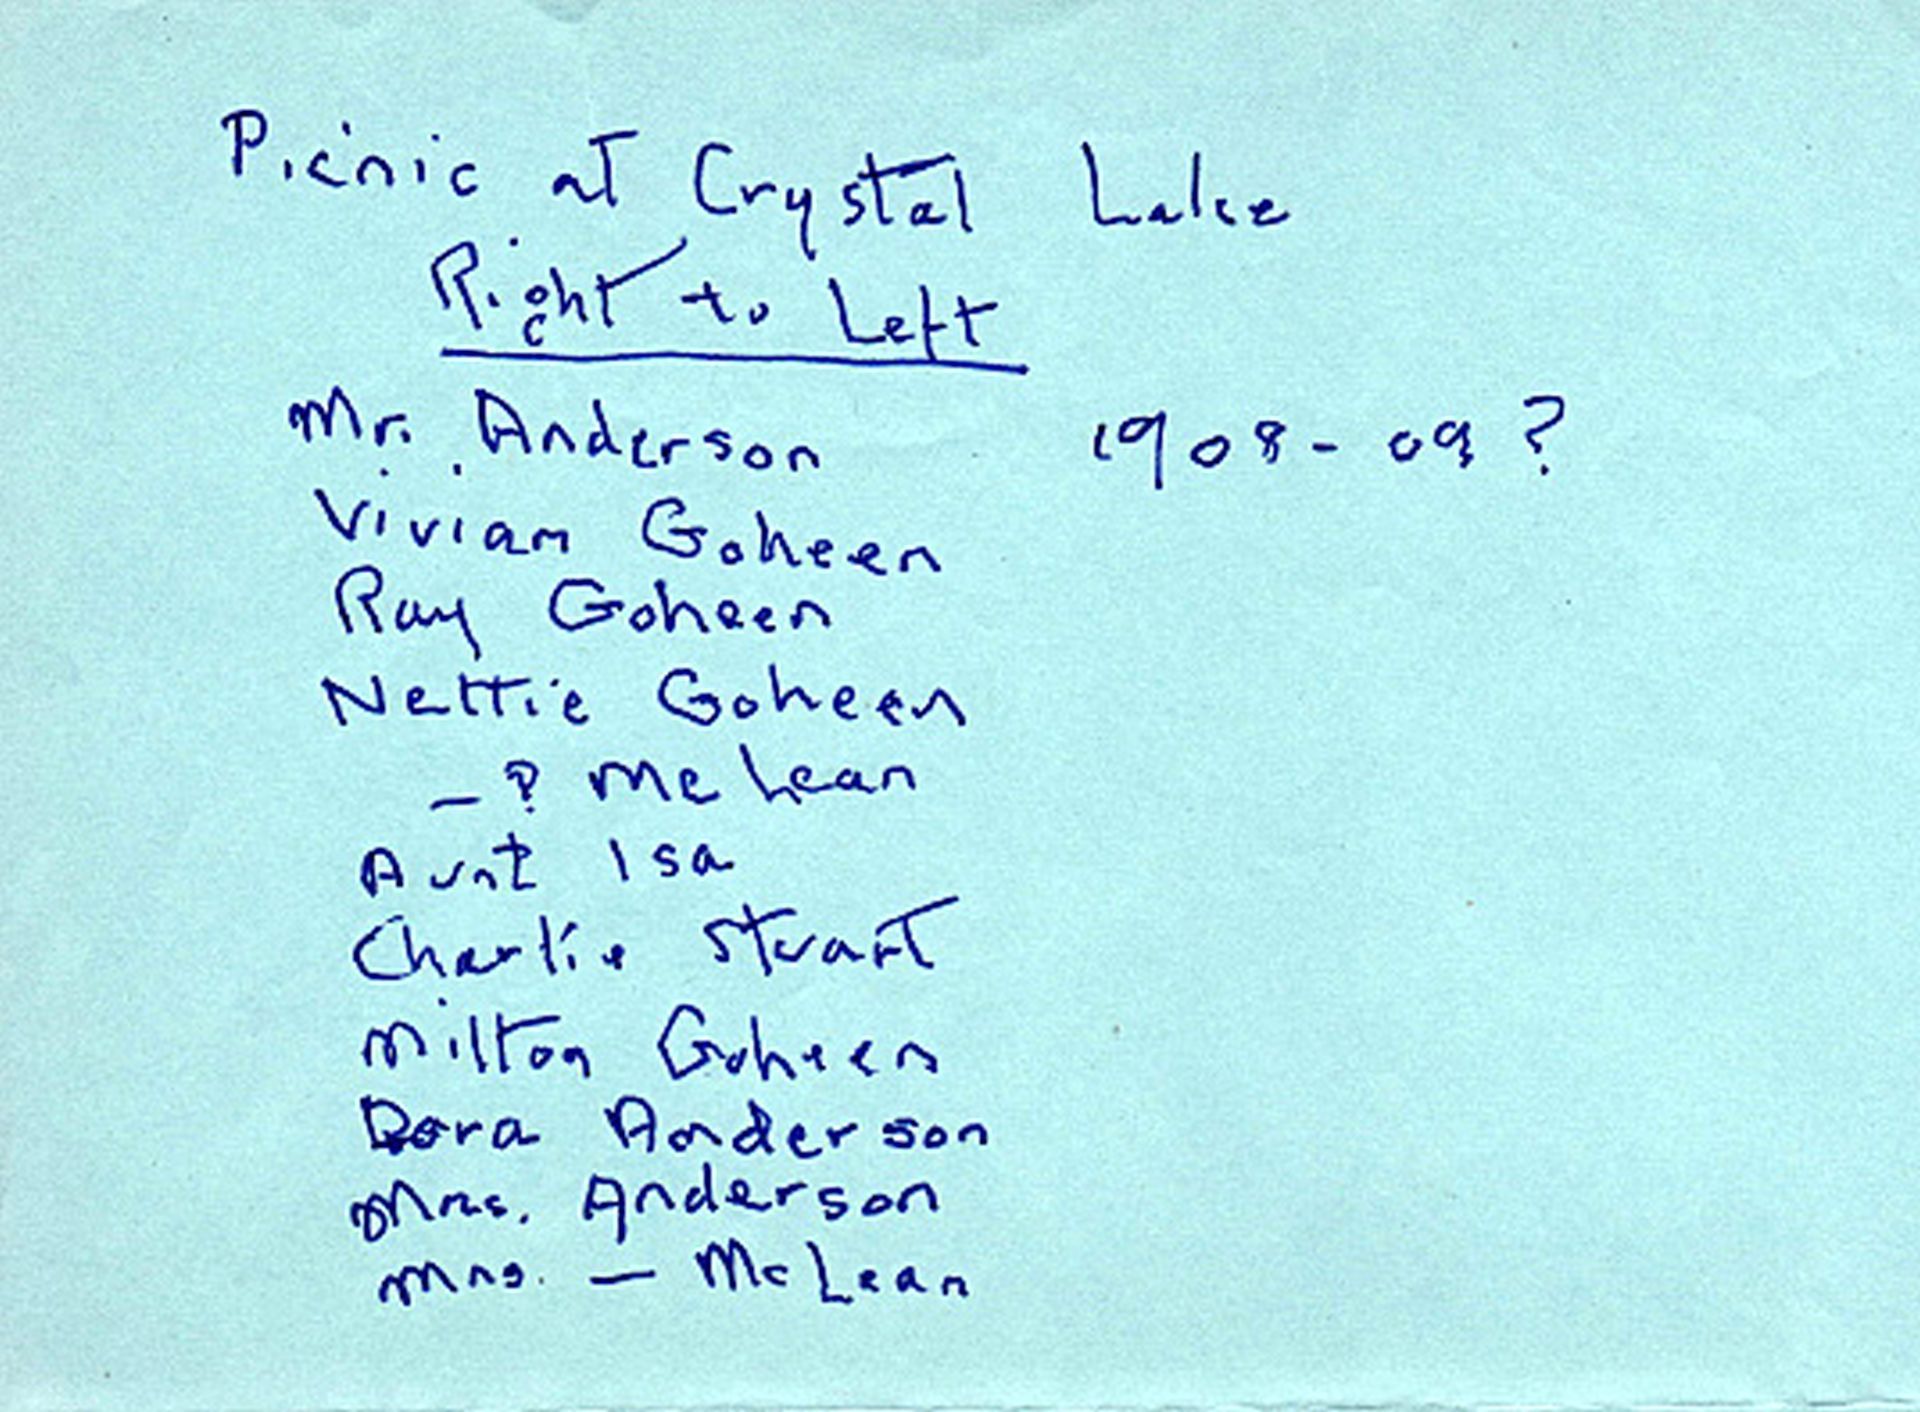 Picnic at Crystal Lake
Right to Left
Mr. Anderson 1908-09?
Vivian Goheen
Ray Goheen
Nettie Goheen
— ? McLean
Aunt Isa
Charlie Stuart
Milton Goheen
Dora Anderson
Mrs. Anderson
Mrs. — McLean